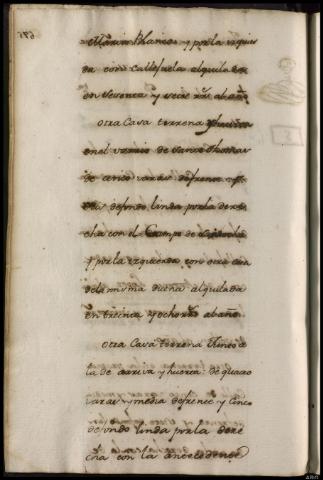 Maria Blanco, y por la izquier
da con Callejuela alquilada
en sesenta y seis rrs. al año
Otra Casa terrena
en el varrio de Santo Thomas
de cinco varas de frente y
de fondo linda por la dere
cha con el Campo de
y por la izquierda con otra casa
de la misma dueña alquilada
en treinta y ocho rrs. al año.
Otra Casa terrena Junto a
la de arriva y huerta: de quatro
varas y media de frente y cinco
de fondo linda por la dere
cha con la antecedente